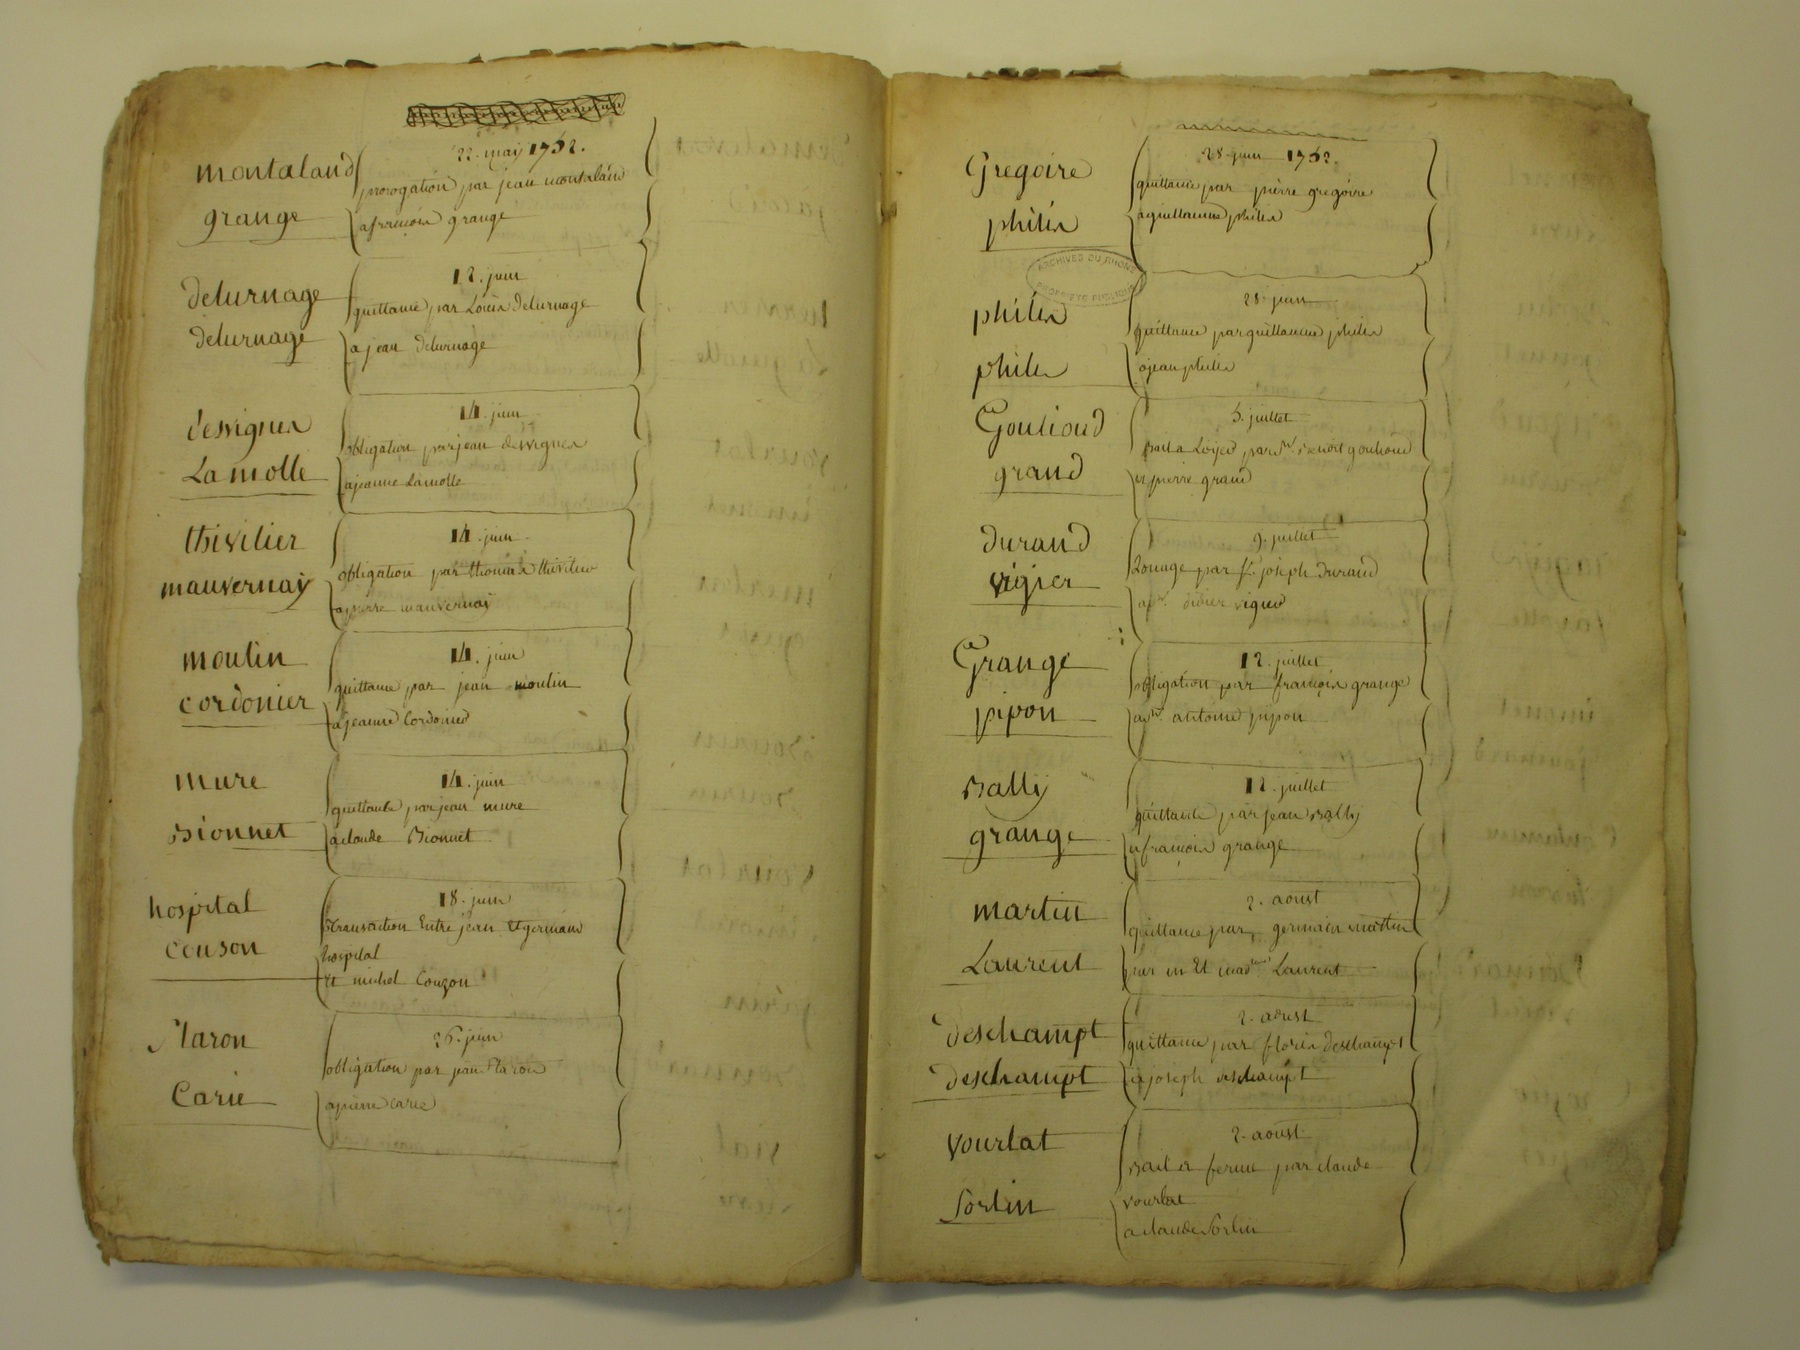 22. may 1762.
montaland
prorogation par jean montaland
grange
a françois grange
12. juin
delurnage
quittance par Louis delurnage
delurnage
a jean delurnage
14. juin
desvignes
obligation par jean desvignes
Lamolle
a jeanne Lamolle
14. juin
thivilier
obligation par thomas thivilier
mauvernay
a pierre mauvernay
14. juin
moulin
quittance par jean moulin
cordonier
a jeanne Cordonier
14. juin
mure
quittance par jean mure
Bionnet
a claude Bionnet
18. juin
hospital
transaction Entre jean et germain
couson
hospital
et michel Couzon
26. juin
obligation par jean
Carie
a pierre carie
28. juin 1762.
Gregoire
quittance par pierre gregoire
philis
a guillaume philis
ARCHIVES DU RHONE
PROPRIÉTÉ PUBLIQUE
28. juin
philis
quittance par guillaume philis
philis
a jean philis
5. juillet
Goulioud
Bail a Loyer par Sr. Benoit goulioud
grand
a pierre grand
9. juillet
durand
Louage par Sr. joseph Durand
vigier
a Sr. didier vigier
12. juillet
Grange
obligation par françois grange
pipon
a Sr. antoine pipon
12. juillet
Bally
quittance par jean Bally
grange
a françois grange
2. aoust
martin
quittance par germain martin
Laurent
par mr Et mad Laurent
2. aoust
deschampt
quittance par floris deschampt
deschampt
a joseph deschampt
2. aoust
vourlat
Bail a ferme par claude
vourlat
Sorlin
a claude Sorlin